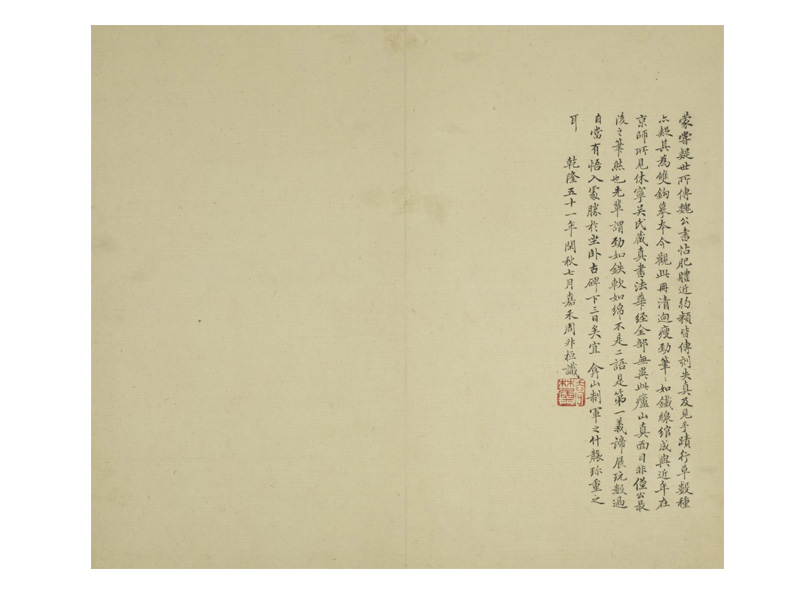 蒙嘗疑世所傳魏公書帖肥體近豹類皆傳刻失真及見手蹟行草數種
亦疑其為雙鉤摹本今觀此冊清迥瘦勁筆〻如鐵線綰成與近年在
京師所見休寧吳氏藏真書法華經全部無異此廬山真面目非僅公最
後之筆然也先輩謂勁如鉄軟如綿不是二語是第一義諦展玩數過
自當有悟入處勝於坐臥古碑下三日矣宜 山制軍之什襲珍重之
耳 乾隆五十一年閏秋七月嘉禾周非桓識